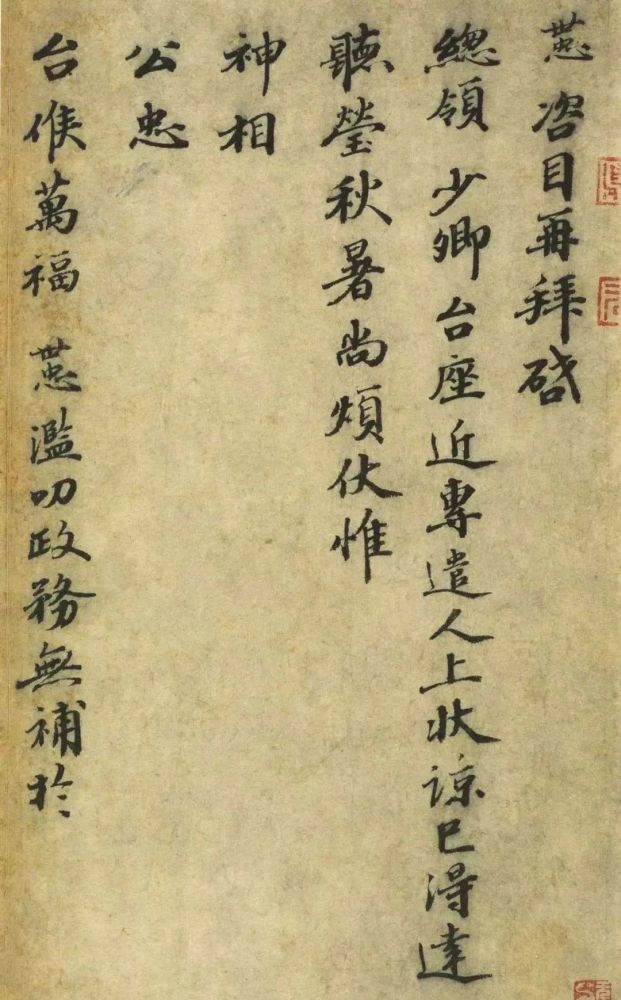 懃咨目再拜啓
總領 少卿台座近專遣人上狀諒已得達
聽瑩秋暑尚煩伏惟
神相
公忠
台候萬福 懃濫叨政務無補於